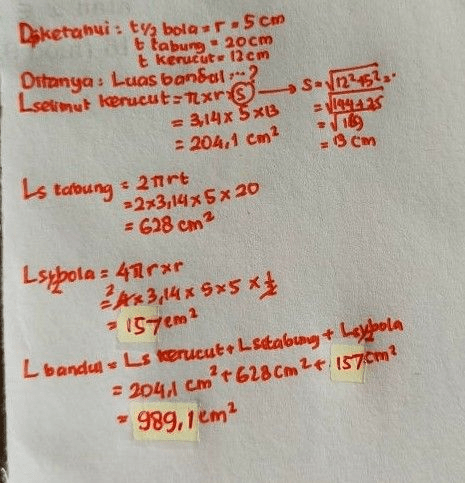 Diketahui : t 1/2 bola = r = 5 cm
t tabung = 20 cm
t kerucut = 12 cm
Ditanya : Luas bandul ...?
Lselimut kerucut = π x r x S → S = √12²+5²
= 3,14 x 5 x 13 = √144+25
= 204,1 cm² = √169
= 13 cm
Ls tabung = 2πrt
= 2x3,14 x 5 x 20
= 628 cm²
Ls 1/2 bola = 4πr x r
= 4 x 3,14 x 5 x 5 x 1/2
2
= 157 cm²
L bandul = Ls kerucut + Ls tabung + Ls 1/2 bola
= 204,1 cm² + 628 cm² + 157 cm²
= 989,1 cm²